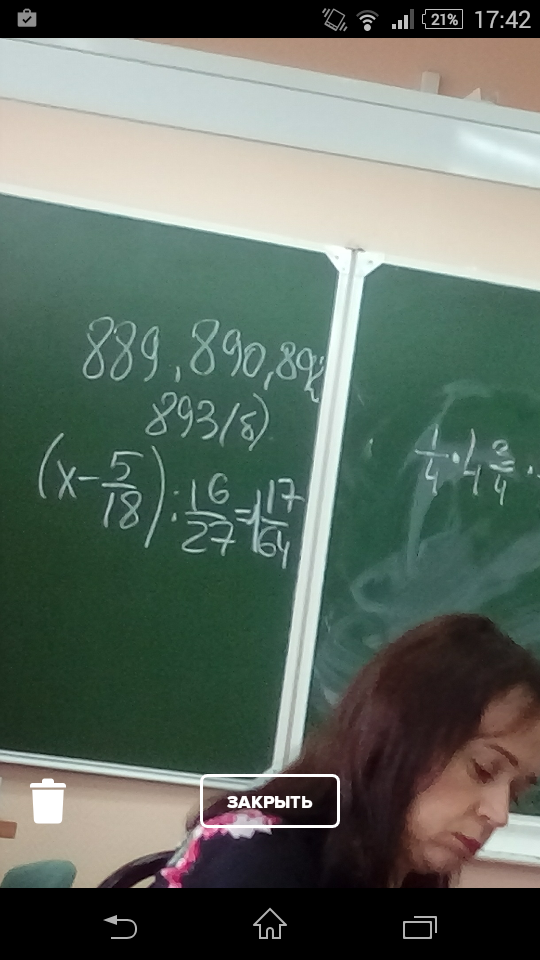 21% 17:42
889, 890, 892
893(б)
(x - 5/18) : 16/27 = 1 17/64
1/4 · 1 3/4 ·
ЗАКРЫТЬ